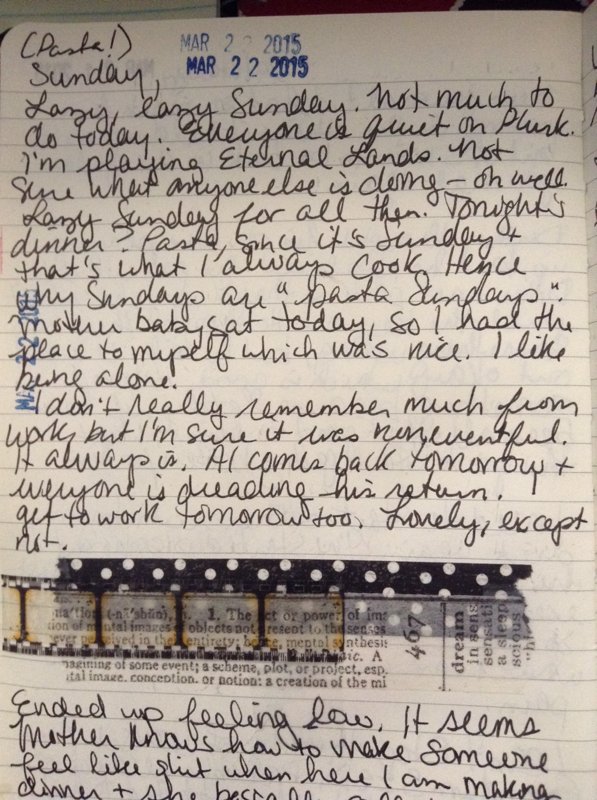 (Pasta!)
MAR 2 2 2015
MAR 2 2 2015
Sunday,
Lazy, lazy Sunday. Not much to
do today. Everyone is quiet on Plurk.
I'm playing Eternal Lands. Not
sure what anyone else is doing - oh well.
Lazy Sunday for all then. Tonight's
dinner? Pasta, since it's Sunday +
that's what I always cook. Hence
my Sundays are "pasta Sundays".
Mother babysat today, so I had the
place to myself which was nice. I like
being alone.
I don't really remember much from
work, but I'm sure it was noneventful.
It always is. Al comes back tomorrow +
everyone is dreading his return. I
get to work tomorrow too. Lovely, except
not.
nation (-nā'shən), n. 1. The act or power of im:
tion of mental images of objects not present to the senses
ever perceived in the entirety; mental synthesis
A
magining of some event; a scheme, plot, or project, esp.
ital image, conception, or notion: a creation of the mi
467
dream
in sens
sensati
a sleep
scious
Ended up feeling low. It seems
Mother knows how to make someone
feel like shit when here I am making
dinner + she